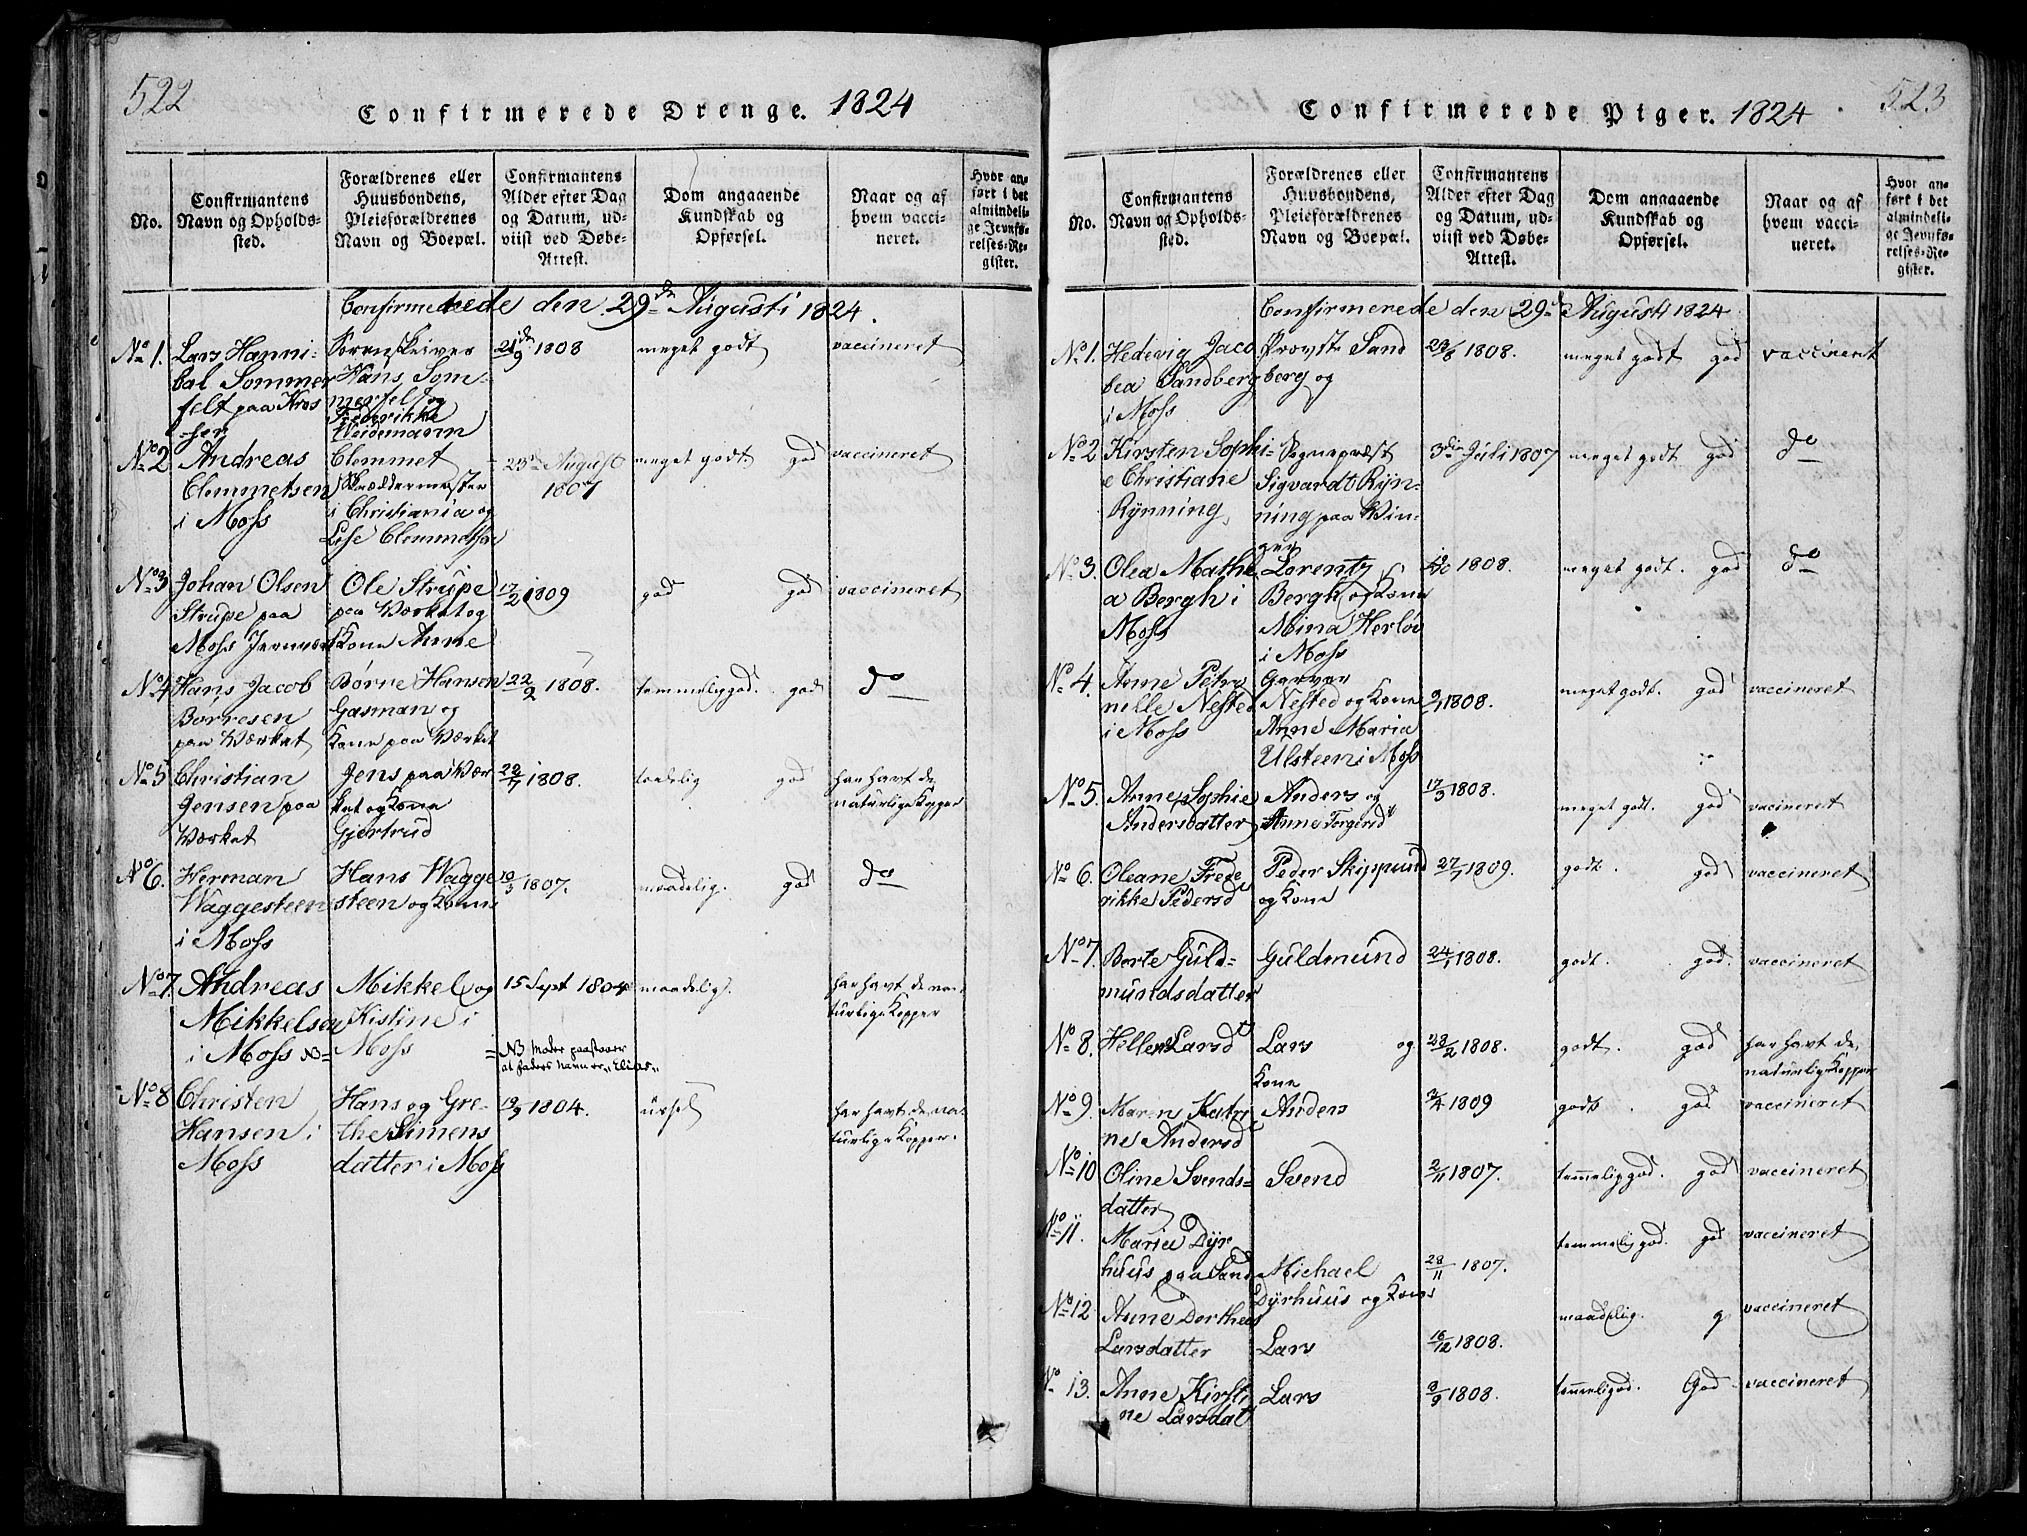 522
Confirmerede Drenge. 1824
No.
Confirmantens
Navn og Opholds-
sted.
Forældrenes eller
Huusbondens,
Pleieforældrenes
Navn og Boepæl.
Confirmantens
Alder efter Dag
og Datum, ud-
viist ved Døbe-
Attest.
Dom angaaende
Kundskab og
Opførsel.
Naar og af
hvem vacci-
neret.
Hvor an-
ført i det
almindeli-
ge Jevnfø-
relses-Re-
gister.
Confirmerede den 29de Augusti 1824.
No 1.
Lars Hanni-
bal Sommer
felt paa Kros
-ser
Sorenskriver
Hans Som-
merfelt og
Frederikke
Weidemann
21/9 1808
meget godt
vaccineret
No 2
Andreas
Clemmetsen
i Moss
Clemmet
Skræddermester
i Christiania og
Lise Clemmetsen
23de August
1807
meget godt. god
vaccineret
No 3
Johan Olsen
Strupe paa
Moss Jernværk
Ole Strupe
paa Værket og
Kone Anne
17/2 1809
god god
vaccineret
No 4
Hans Jacob
Børresen
paa Værket
Børre Hansen
Gasman og
Kone paa Værket
22/2 1808.
temmelig god. god
do
No 5
Christian
Jensen paa
Værket
Jens paa Vær
ket og Kone
Gjertrud
22/7 1808.
maadelig god
har havt de
naturlige Kopper
No 6.
Herman
Waggesteen
i Moss
Hans Wagge
steen og Kone
19/3 1807.
maadelig. god
do
No 7.
Andreas
Mikkelsen
i Moss NB=
Mikkel og
Kistine i
Moss
15 Sept 1804
=NB Moder paastaaer
at faders navn er "Elias"
maadelig.
har havt de na-
turlige Kopper
No 8
Christen
Hansen i
Moss
Hans og Gre-
the Simens
datter i Moss
19/9 1804.
ussel
har havt de na-
turlige Kopper.
523
Confirmerede Piger. 1824.
No.
Confirmantens
Navn og Opholds-
sted.
Forældrenes eller
Huusbondens,
Pleieforældrenes
Navn og Boepæl.
Confirmantens
Alder efter Dag
og Datum, ud-
viist ved Døbe-
Attest.
Dom angaaende
Kundskab og
Opførsel.
Naar og af
hvem vacci-
neret.
Hvor an-
ført i det
almindeli-
ge Jevnfø-
relses-Re-
gister.
Confirmerede den 29de Augusti 1824
No 1.
Hedevig Jaco
bea Sandberg
i Moss
Provst Sand
berg og
23/8 1808.
meget godt god
vaccineret
No 2
Kirsten Sophi-
e Christiane
Rynning,
Sognepræst
Sigvardt Ryn-
ning paa Vin-
ger
3die Juli 1807
meget godt god
do
No 3.
Olea Mathe
a Bergh i
Moss
Lorentz
Bergh og Kone
Mina Herlov
i Moss
1808.
meget godt. god
do
No 4.
Anne Petro
nelle Nested
i Moss
Garver
Nested og Kone
Anne Maria
Ulsteen i Moss
9/7 1808.
meget godt. god
vaccineret
No 5.
Anne Sophie
Andersdatter
Anders og
Anne Torgersdr
17/3 1808.
meget godt. god
vaccineret
No 6.
Oleane Frede
rikke Pedersdr
Peder Skipprud
og Kone
27/7 1809.
godt. god
vaccineret
No 7.
Berte Guld-
mundsdatter
Guldmund
24/1 1808.
godt. god.
vaccineret
No 8.
Hellene Larsdr
Lars og
Kone
28/2 1808.
godt. god
har havt de
naturlige Kopper
No 9.
Maren Katri
ne Andersdr
Anders
3/4 1809
godt. god
vaccineret
No 10
Oline Svends-
datter
Svend
2/11 1807.
temelig god. god
vaccineret
No 11.
Maria Dyr
huus paa Sand
Michael
Dyrhuus og Kone
28/11 1807.
temmelig god. god
vaccineret
No 12
Anne Dorthea
Larsdatter
Lars
16/12 1808.
maadelig. g
vaccineret
No 13.
Anne Kirsti
ne Larsdat
Lars
3/9 1808.
temeligod. God
vaccineret